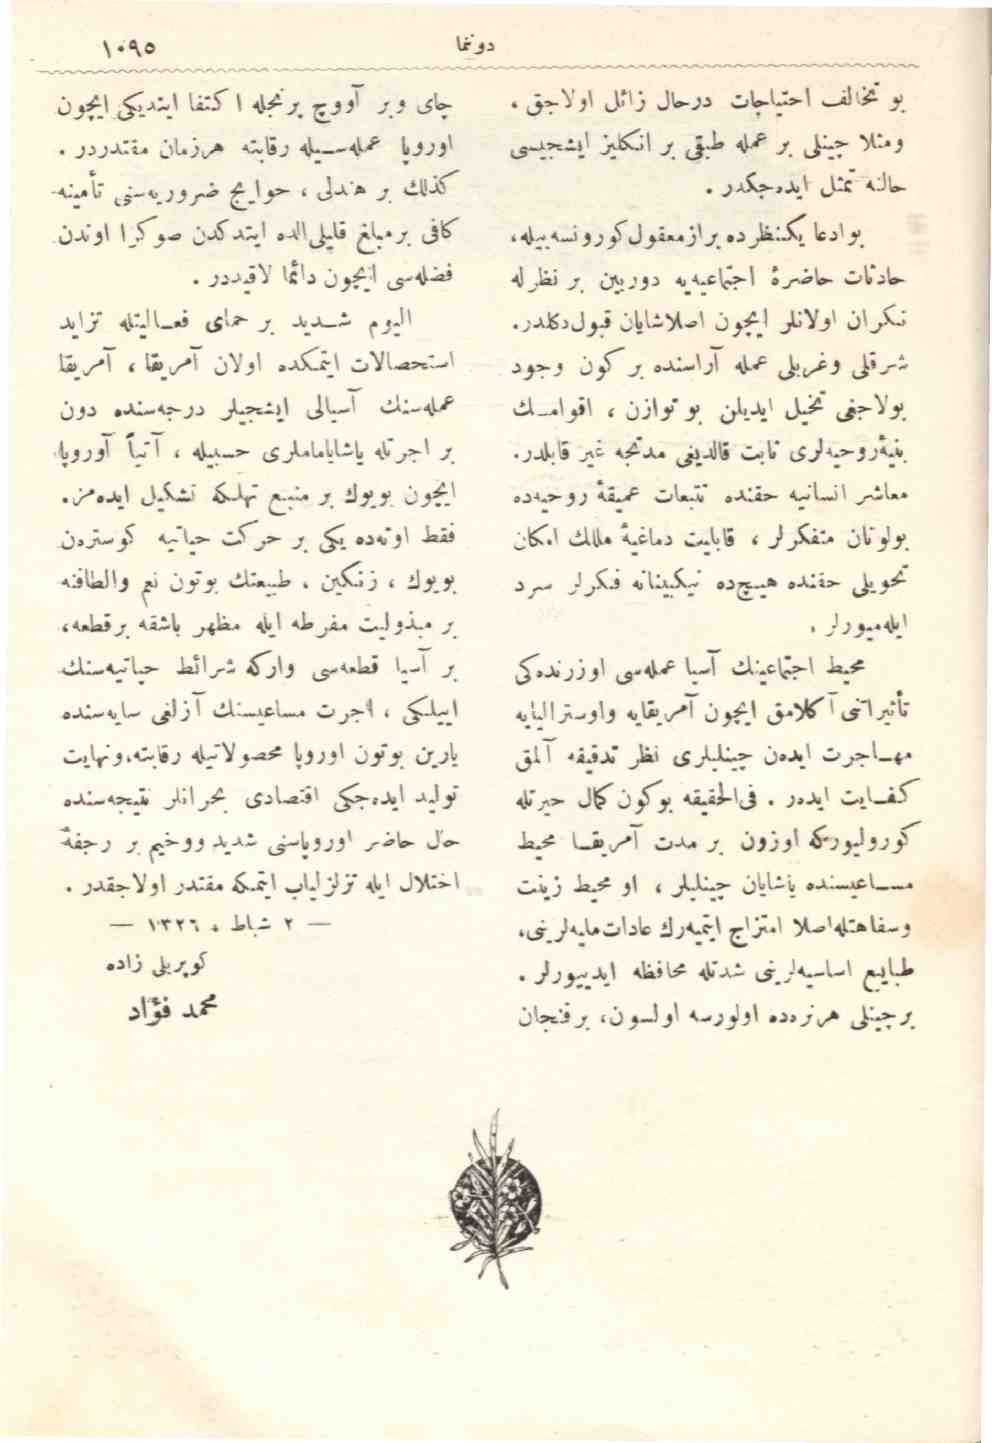 دوننما
١٠٩٥
بو تخالف احتیاجات درحال زائل اولاجق ،
ومثلا چینلی بر عمله طبقی بر انکلیز ایشجیسی
حالنه تمثل ایده‌جکدر .
بو ادعا یک‌نظرده براز معقول کورونسه‌بیله،
حادثات حاضرهٔ اجتماعیه‌یه دوربین بر نظرله
نکران اولانلر ایچون اصلا شایان قبول دکلدر.
شرقلی وغربلی عمله آراسنده بر کون وجود
بولاجغی تخیل ایدیلن بو توازن ، اقوامـك
بنیهٔ روحیه‌لری ثابت قالدیغی مدتجه غیر قابلدر.
معاشر انسانیه حقنده تتبعات عمیقهٔ روحیه‌ده
بولونان متفکرلر ، قابلیت دماغیهٔ مللك امکان
تحویلی حقنده هیـچده نیکبینانه فکرلر سرد
ایله‌میورلر .
محیط اجتماعینك آسیا عمله‌سی اوزرنده‌کی
تأثیراتنی آکلامق ایچون آمریقایه واوسترالیایه
مهـاجرت ایده‌ن چینلیلری نظر تدقیقه آلمق
کفـایت ایده‌ر . فی‌الحقیقه بوکون کمال حیرتله
کورولیورکه اوزون بر مدت آمریقـا محیط
مسـاعیسنده یاشایان چینلیلر ، او محیط زینت
وسفاهتله اصلا امتزاج ایتمیه‌رك عادات ملیه‌لرینی،
طبایع اساسیه‌لرینی شدتله محافظه ایدییورلر .
بر چینلی هرنره‌ده اولورسه اولسون، بر فنجان
چای و بر آووچ پرنجله ا کتفا ایتدیکی ایچون
اوروپا عمله‌سـیله رقابته هرزمان مقتدردر .
کذلك بر هندلی ، حوایج ضروریه‌سنی تأمینه
کافی بر مبلغ قلیلی الده ایتدکدن صوکرا اوندن
فضله‌سی ایچون دائما لاقیددر .
الیوم شـدید بر حمای فعـالیتله تزاید
استحصالات ایتمکده اولان آمریقا ، آمریقا
عمله‌سنك آسیالی ایشجیلر درجه‌سنده دون
بر اجرتله یاشایاماملری حسبیله ، آتیاً آوروپا
ایچون بویوك بر منبع تهلکه تشکیل ایده‌مز.
فقط اوته‌ده یکی بر حرکت حیاتیه کوستره‌ن
بویوك ، زنکین ، طبیعتك بوتون نعم والطافنه
بر مبذولیت مفرطه ایله مظهر باشقه بر قطعه،
بر آسیا قطعه‌سی وارکه شرائط حیاتیه‌سنك
اییلیکی ، اجرت مساعیسنك آزلغی سایه‌سنده
یارین بوتون اوروپا محصولاتیله رقابته، ونهایت
تولید ایده‌جکی اقتصادی بحرانلر نتیجه‌سنده
حال حاضر اوروپاسنی شدید ووخیم بر رجفهٔ
اختلال ایله تزلزلیاب ایتمکه مقتدر اولاجقدر .
— ٢ شباط ، ١٣٢٦ —
کوپریلی زاده
محمد فؤاد